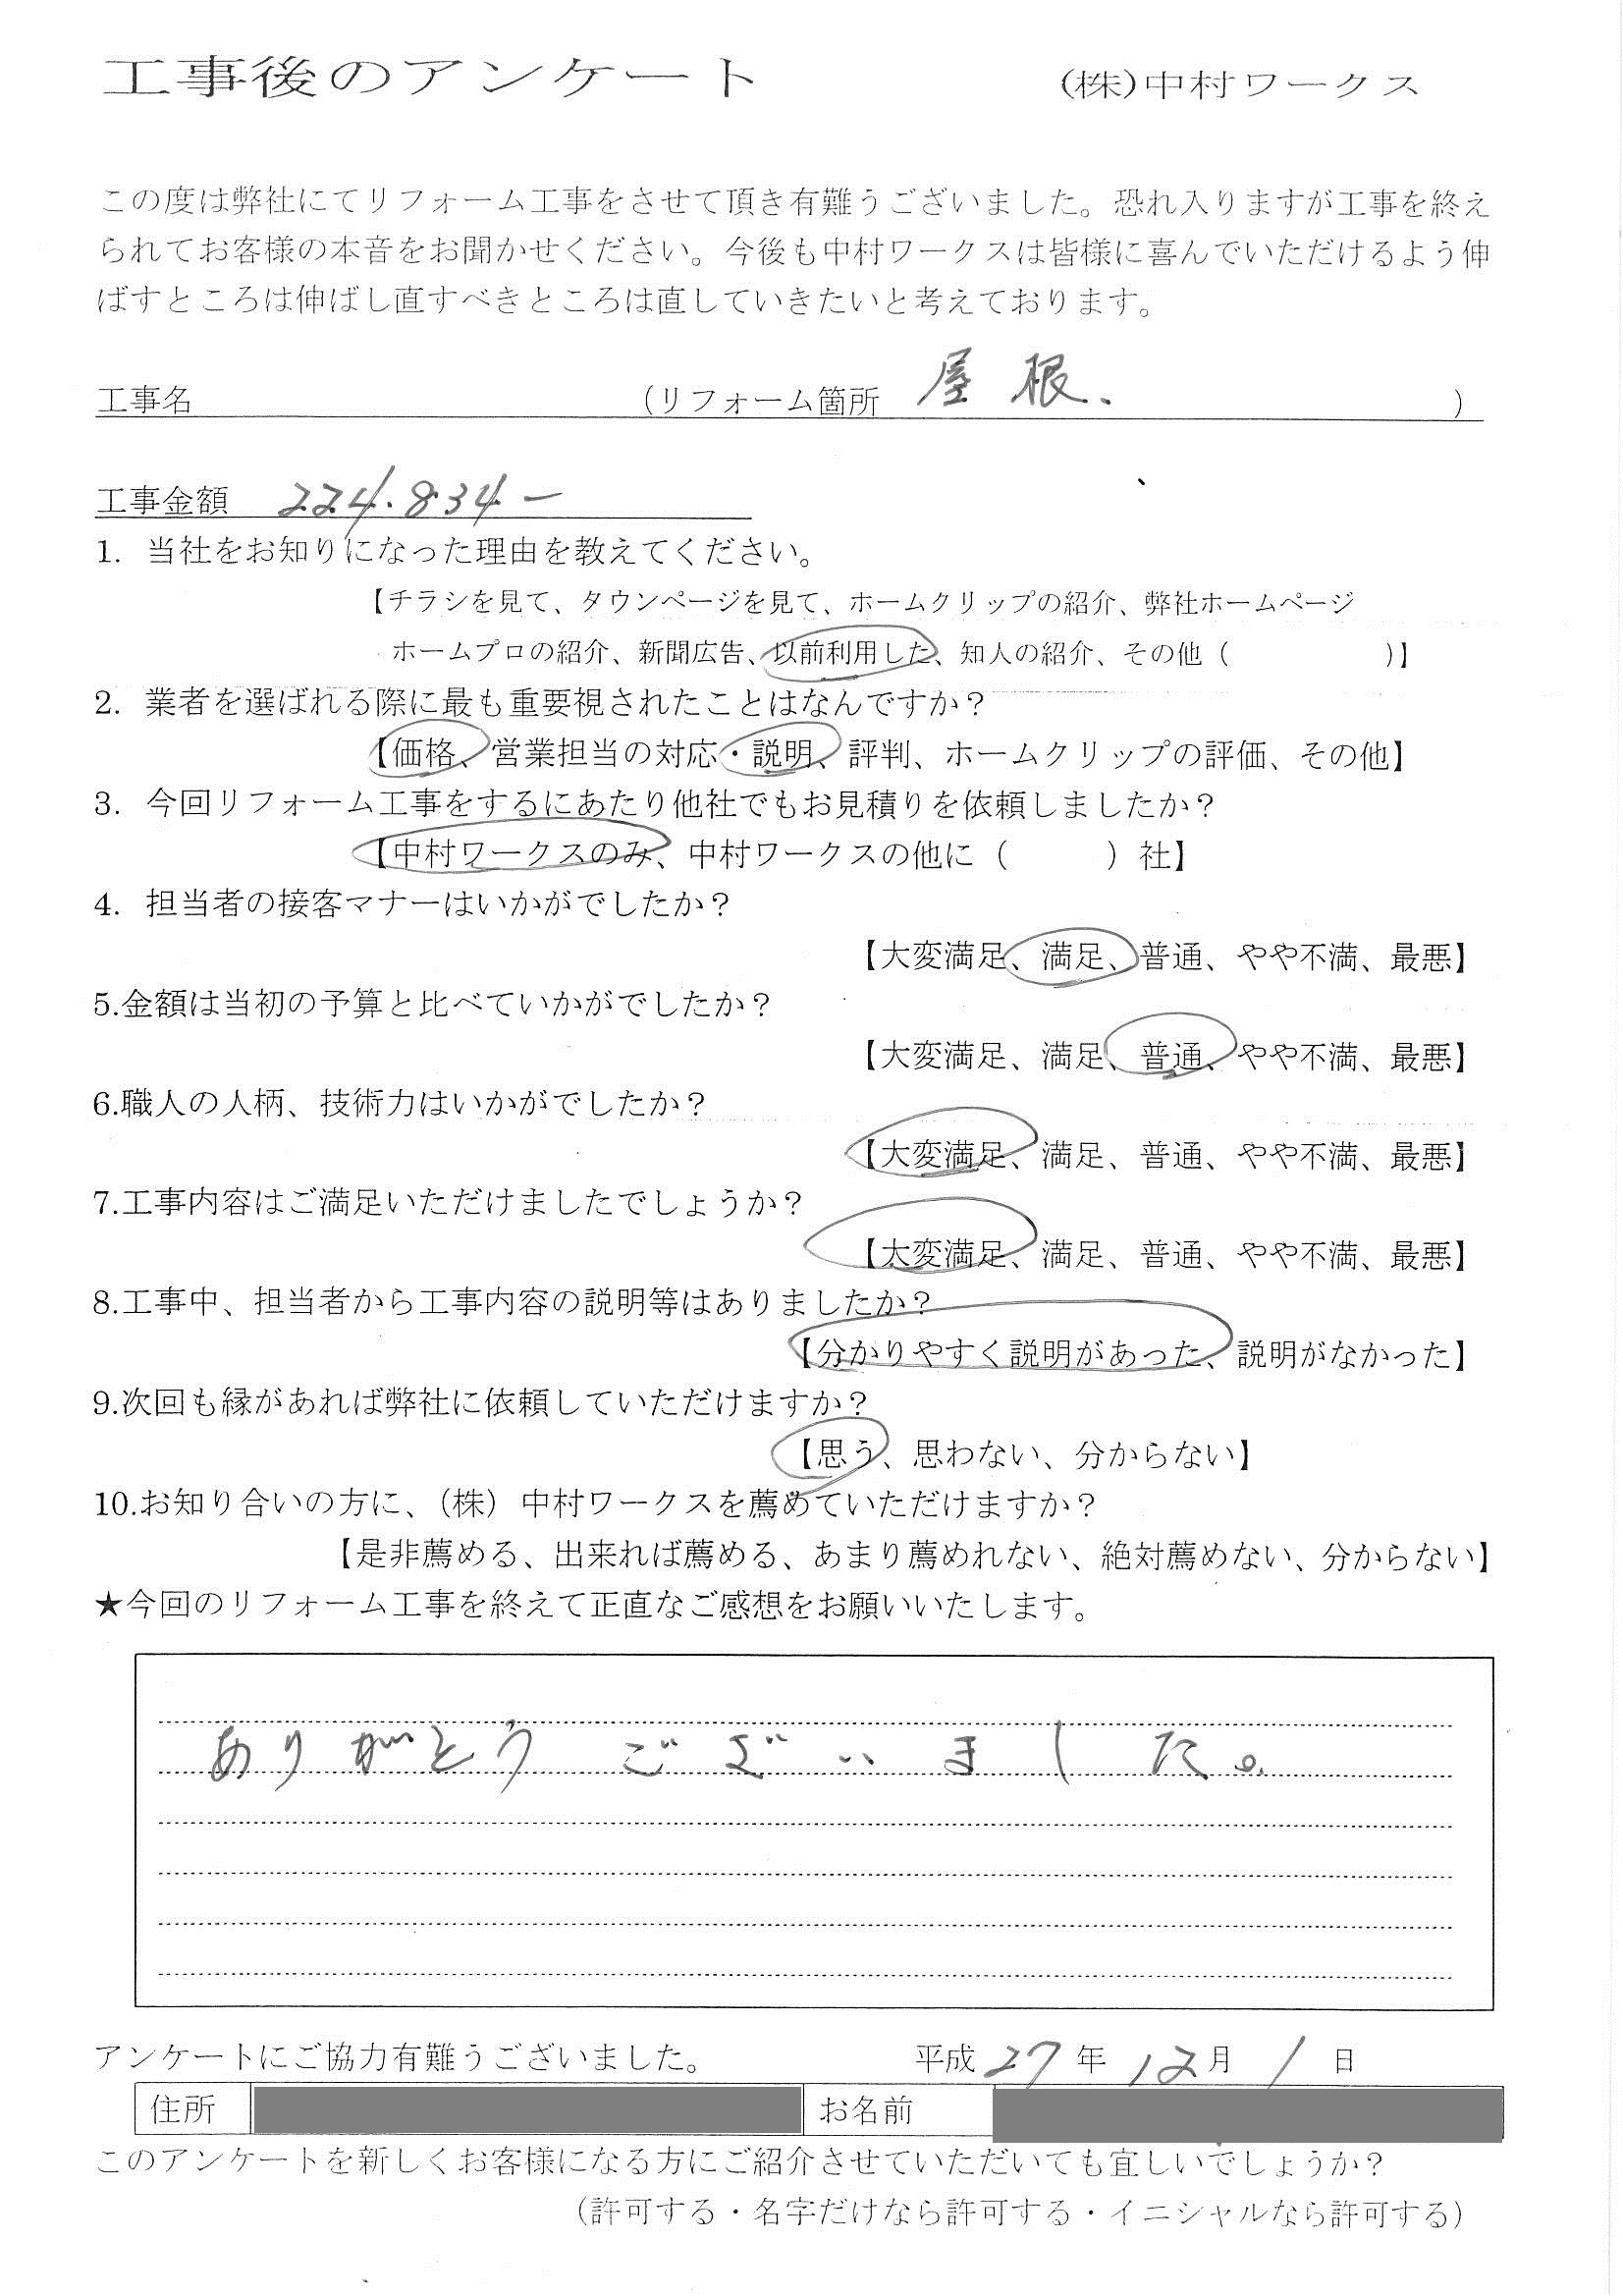 工事後のアンケート (株)中村ワークス
この度は弊社にてリフォーム工事をさせて頂き有難うございました。恐れ入りますが工事を終え
られてお客様の本音をお聞かせください。今後も中村ワークスは皆様に喜んでいただけるよう伸
ばすところは伸ばし直すべきところは直していきたいと考えております。
工事名 (リフォーム箇所 屋根、 )
工事金額 224.834ー
1. 当社をお知りになった理由を教えてください。
【チラシを見て、タウンページを見て、ホームクリップの紹介、弊社ホームページ
ホームプロの紹介、新聞広告、以前利用した、知人の紹介、その他（ )】
2. 業者を選ばれる際に最も重要視されたことはなんですか？
【価格、営業担当の対応・説明、評判、ホームクリップの評価、その他】
3. 今回リフォーム工事をするにあたり他社でもお見積りを依頼しましたか？
【中村ワークスのみ、中村ワークスの他に（ ）社】
4. 担当者の接客マナーはいかがでしたか？
【大変満足、満足、普通、やや不満、最悪】
5.金額は当初の予算と比べていかがでしたか？
【大変満足、満足、普通、やや不満、最悪】
6.職人の人柄、技術力はいかがでしたか？
【大変満足、満足、普通、やや不満、最悪】
7.工事内容はご満足いただけましたでしょうか？
【大変満足、満足、普通、やや不満、最悪】
8.工事中、担当者から工事内容の説明等はありましたか？
【分かりやすく説明があった、説明がなかった】
9.次回も縁があれば弊社に依頼していただけますか？
【思う、思わない、分からない】
10.お知り合いの方に、（株）中村ワークスを薦めていただけますか？
【是非薦める、出来れば薦める、あまり薦めれない、絶対薦めない、分からない】
★今回のリフォーム工事を終えて正直なご感想をお願いいたします。
ありがとうございました。
アンケートにご協力有難うございました。 平成 27 年 12 月 1 日
住所 お名前
このアンケートを新しくお客様になる方にご紹介させていただいても宜しいでしょうか？
（許可する・名字だけなら許可する・イニシャルなら許可する）